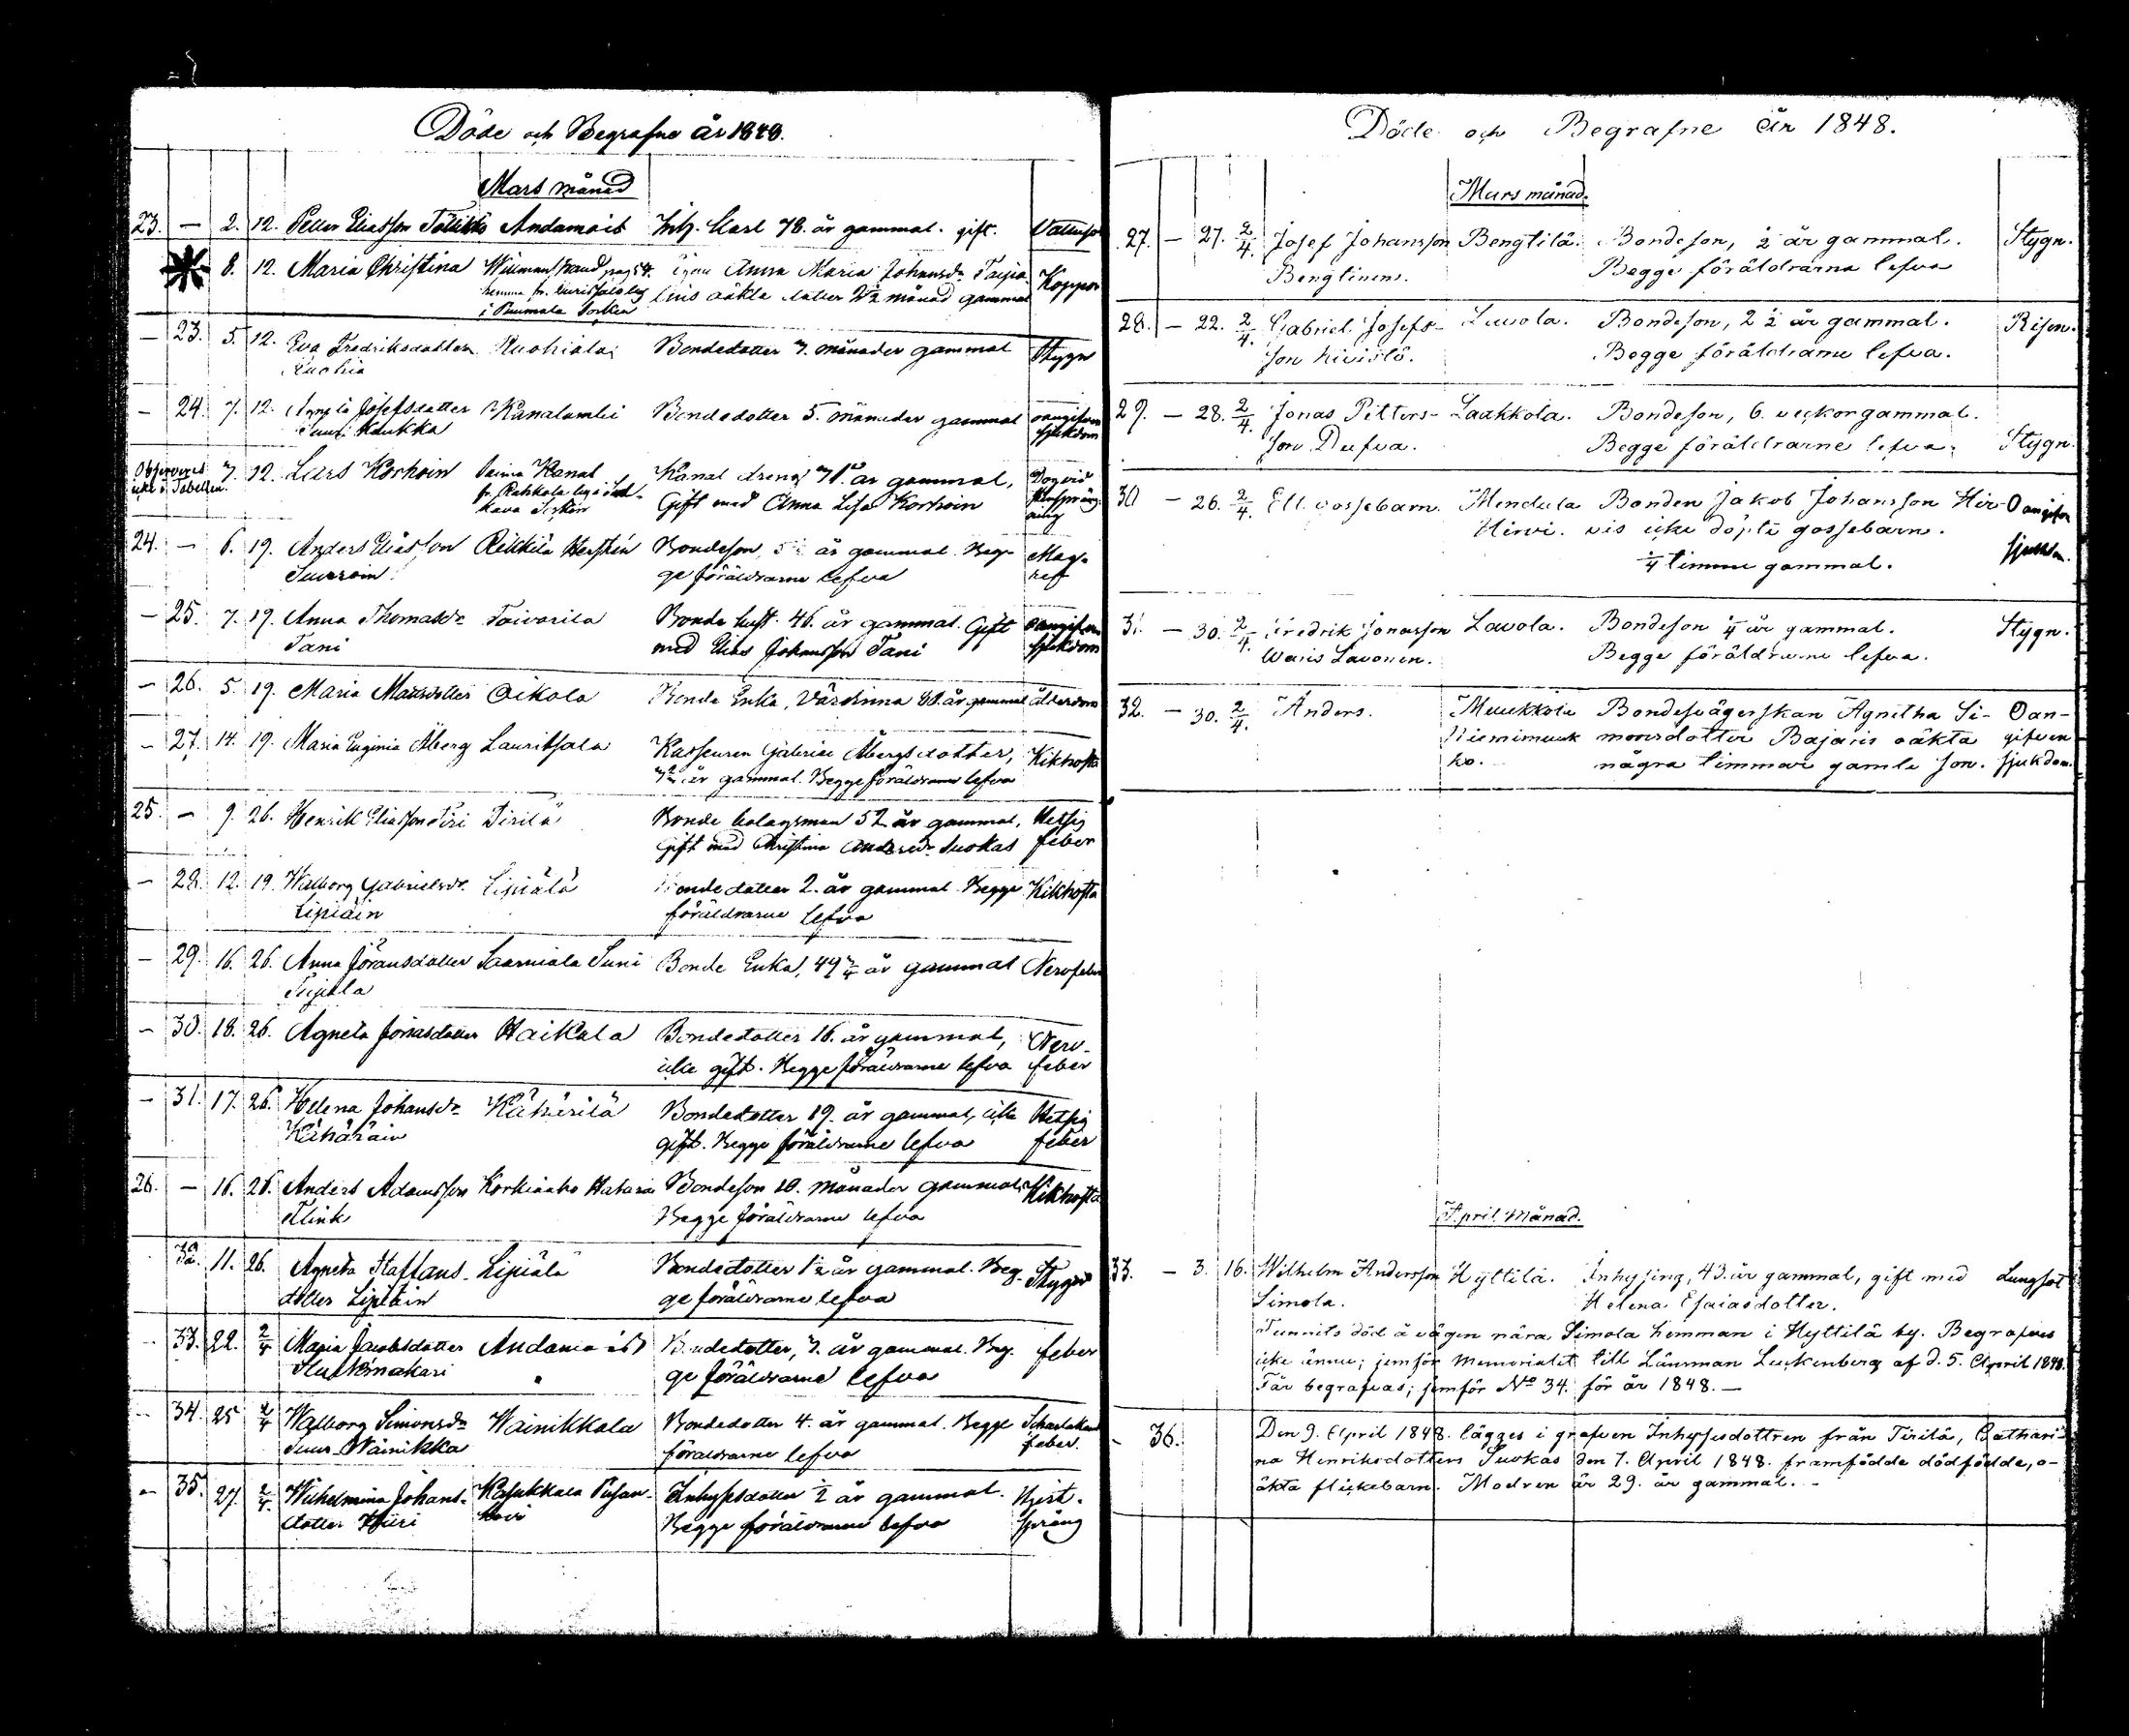 Döde och Begrafne År 1848.
Mars månad
23. — 2. 12. Petter Eliasson Andamais Inh. Karl 78. år gammal. gift. Vattusot
8. 12. Maria Christina Willmanstrand pag 54. Anna Maria Johansdr Taipa-
hemma fr. i Puumala Socken lius oäkta dotter 2½ månad gammal Koppor
— 23. 5. 12. Eva Fredriksdotter Ruohiala Bondedotter 7. månader gammal Stygn
Ruohia
— 24. 7. 12. Agneta Josefsdotter Kanalambi Bondedotter 5. månader gammal oangifven
Suur Kaukka sjukdom
Observeras icke i Tabellen. 7. 12. Lars Korhoin Saima Kanal Kanal dreng 71. år gammal,
fr. Gift med Anna Lisa Korhoin
24. — 6. 19. Anders Eliasson Rikkilä Bondeson 5½ år gammal. Beg- Mag-
Suurroin ge föräldrarne lefva ref
— 25. 7. 19. Anna Thomasdr Toivarila Bonde hust. 46. år gammal. Gift oangifven
Tani med Elias Johansson Tani sjukdom
— 26. 5. 19. Maria Matsdotter Oikola Bonde Enka, Värdinna 80. år gammal ålderdom
— 27. 14. 19. Maria Euginia Åberg Lauritsala Kasseuren Gabriel Åbergs dotter, Kikhosta
år gammal. Begge föräldrarne lefva
25. — 9. 26. Henrik Eliasson Tiri Tirilä Bonde bolagsman 52 år gammal, Hetsig
Gift med Christina Andersdr Suokas feber
— 28. 12. 19. Walborg Gabrielsdr Lipiälä Bondedotter 2. år gammal. Begge Kikhosta
Lipiäin föräldrarne lefva
— 29. 16. 26. Anna Göransdotter Saarniala Suni Bonde Enka, 49 ¾ år gammal Nervfeber
— 30. 18. 26. Agneta Jonasdotter Haikala Bondedotter 16. år gammal, Nerv-
icke gift. Begge föräldrarne lefva feber
— 31. 17. 26. Helena Johansdr Kähärilä Bondedotter 19. år gammal, icke Hetsig
Kähäräin gift. Begge föräldrarne lefva feber
26. — 16. 26. Anders Adamsson Korkiaaho Bondeson 10. månader gammal. Kikhosta
Flink Begge föräldrarne lefva
32. 11. 26. Agneta Staffans- Lipiälä Bondedotter 1½ år gammal. Beg- Stygn
dotter Lipiäin ge föräldrarne lefva
— 33. 22. 2/4 Maria Jacobsdotter Andamais Bondedotter, 7. år gammal. Beg- feber
ge föräldrarne lefva
— 34. 25 2/4 Walborg Simonsdr Wainikkala Bondedotter 4. år gammal. Begge Scharlakans
Suur Wainikka föräldrarne lefva feber.
— 35. 27. 2/4. Wilhelmina Johans- Kasukkala Inhysesdotter ½ år gammal. Brist-
dotter Hiiri Begge föräldrarne lefva språng
Döde och Begrafne År 1848.
Mars månad.
27. — 27. 2/4. Josef Johansson Bengtilä. Bondeson, ½ år gammal. Stygn.
Bengtinen. Begge föräldrarna lefva
28. — 22. 2/4. Gabriel Josefs- Lavola. Bondeson, 2 ½ år gammal. Risen.
son Kivistö. Begge föräldrarne lefva.
29. — 28. 2/4. Jonas Petters- Laakkola. Bondeson, 6. veckor gammal.
son Dufva. Begge föräldrarne lefva. Stygn.
30 — 26. 2/4. Ett gossebarn. Mendula Bonden Jakob Johansson Hir- Oangifven
Hirvi. vis icke döpte gossebarn. sjukdom.
¼ timme gammal.
31. — 30. 2/4. Fredrik Jonasson Lavola. Bondeson ¼ år gammal. Stygn.
Waris Lavonen. Begge föräldrarne lefva.
32. — 30. 2/4. Anders. Muukkola Bondesvägerskan Agnetha Si- Oan-
Niemimuuk- monsdotter Bajaris oäkta gifven
ko. några timmar gamle son. sjukdom.
April månad.
33. — 3. 16. Wilhelm Andersson Hyttilä. Inhysing, 43. år gammal, gift med Lungsot
Simola. Helena Esaiasdotter.
Funnits död å vägen nära Simola hemman i Hyttilä by. Begrafves
icke ännu; jemför memorialet till Länsman Luckenberg af d. 5. April 1848.
Får begrafvas; jemför No 34. för år 1848. —
- 36. Den 9. April 1848. lägges i grafven Inhysesdottren från Tirilä, Cathari-
na Henriksdotters Suokas den 7. April 1848. framfödde dödfödde, o-
äkta flickebarn. Modren är 29. år gammal. -